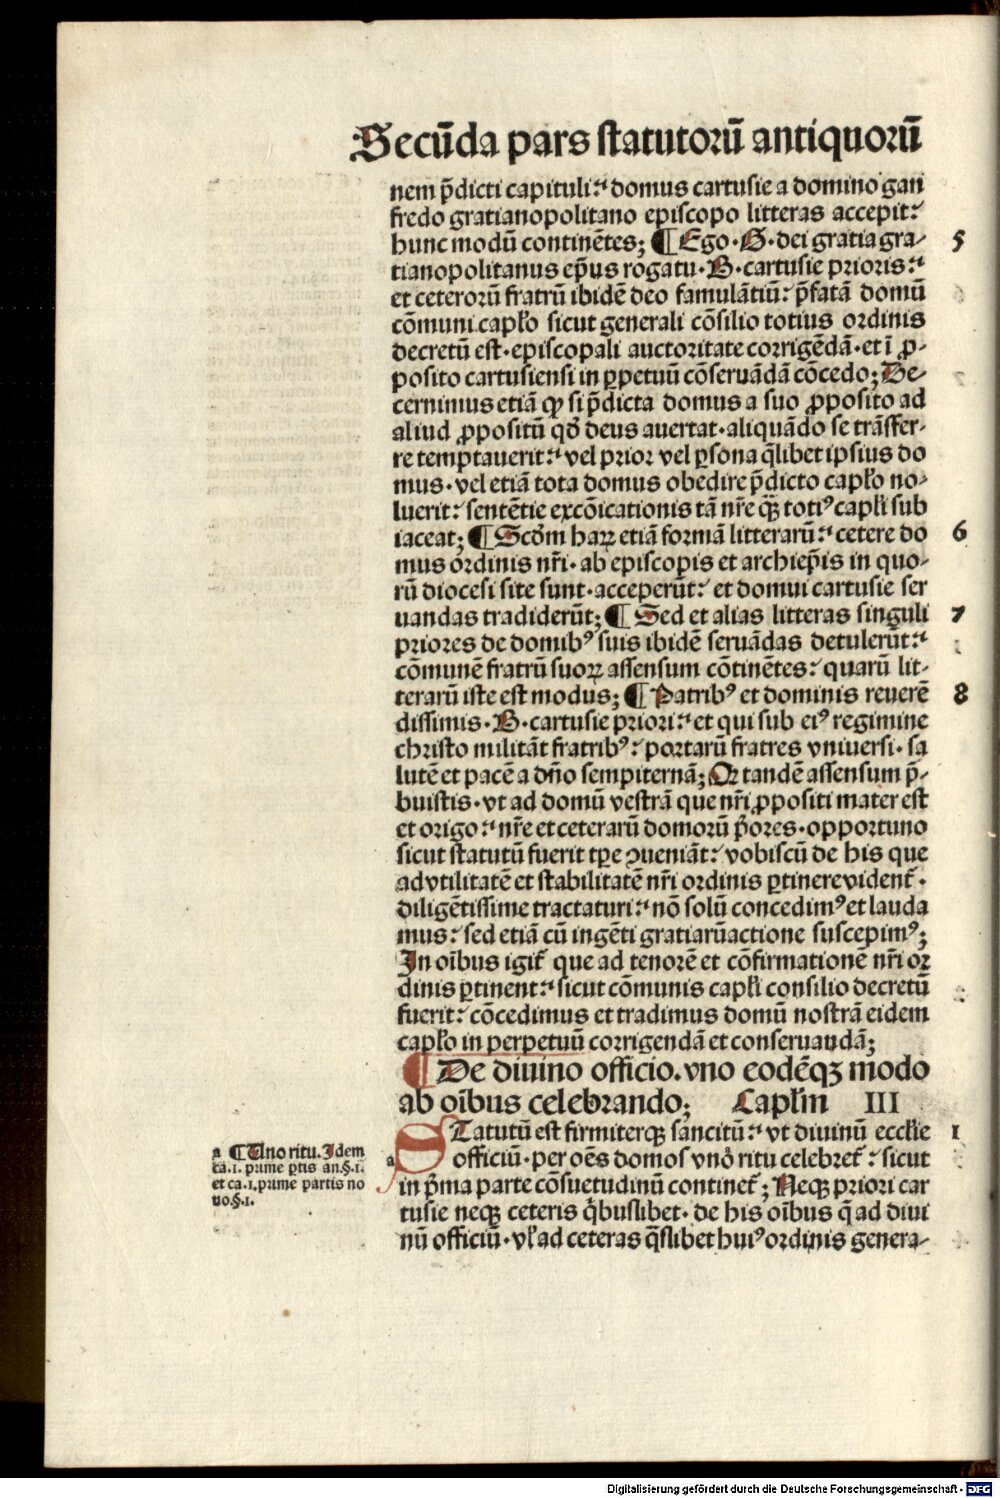 Secūda pars statutorū antiquorū
nem p̄dicti capituli: domus cartusie a domino gan
fredo gratianopolitano episcopo litteras accepit:
hunc modū continētes; ¶ Ego · G · dei gratia gra- 5
tianopolitanus ep̄us rogatu · B · cartusie prioris:
et ceterorū fratrū ibidē deo famulātiū: p̄fatā domū
cōmuni capl̓o sicut generali cōsilio totius ordinis
decretū est · episcopali auctoritate corrigēdā · et ī ꝓ-
posito cartusiensi in ꝑpetuū cōseruādā cōcedo; De-
cernimus etiā qꝫ si p̄dicta domus a suo ꝓposito ad
aliud ꝓpositū qō deus auertat · aliquādo se trāsfer-
re temptauerit: vel prior vel ꝑsona q̄libet ipsius do
mus · vel etiā tota domus obedire p̄dicto capl̓o no-
luerit: sentētie excōicationis tā nr̄e qꝫ̄ totiꝰ capl̓i sub
iaceat; ¶ Scōm haꝝ etiā formā litterarū: cetere do 6
mus ordinis nr̄i · ab episcopis et archiep̄is in quo-
rū diocesi site sunt · acceperūt: et domui cartusie ser
uandas tradiderūt; ¶ Sed et alias litteras singuli 7
priores de domibꝰ suis ibidē seruādas detulerūt:
cōmunē fratrū suoꝝ assensum cōtinētes: quarū lit-
terarū iste est modus; ¶ Patribꝰ et dominis reuerē 8
dissimis · B · cartusie priori: et qui sub eiꝰ regimine
christo militāt fratribꝰ: portarū fratres vniuersi · sa
lutē et pacē a dn̄o sempiternā; Qꝛ tandē assensum p̄-
buistis · vt ad domū vestrā que nr̄i ꝓpositi mater est
et origo: nr̄e et ceterarū domorū p̄ores · opportuno
sicut statutū fuerit tp̄e ꝯueniāt: vobiscū de his que
ad vtilitatē et stabilitatē nr̄i ordinis ꝑtinere vident̄ ·
diligētissime tractaturi: nō solū concedimꝰ et lauda
mus: sed etiā cū ingēti gratiarū actione suscepimꝰ;
In oībus igit̄ que ad tenorē et cōfirmationē nr̄i or
dinis ꝑtinent: sicut cōmunis capl̓i consilio decretū
fuerit: cōcedimus et tradimus domū nostrā eidem
capl̓o in perpetuū corrigendā et conseruandā;
¶ De diuino officio. vno eodēqꝫ modo
ab oībus celebrando; Capl̓m III
STatutū est firmiterqꝫ sancitū: vt diuinū eccl̓ie 1
officiū · per oēs domos vnō ritu celebret̄: sicut
in p̄ma parte cōsuetudinū continet̄; Neqꝫ priori car
tusie neqꝫ ceteris q̄buslibet · de his oībus q̄ ad diui
nū officiū · vl̓ ad ceteras q̄slibet huiꝰ ordinis genera-
a ¶ Uno ritu. Idem
ca.1. prime ꝑtis an.§.1.
et ca.1. prime partis no
uo.§.1.
a
Digitalisierung gefördert durch die Deutsche Forschungsgemeinschaft - DFG